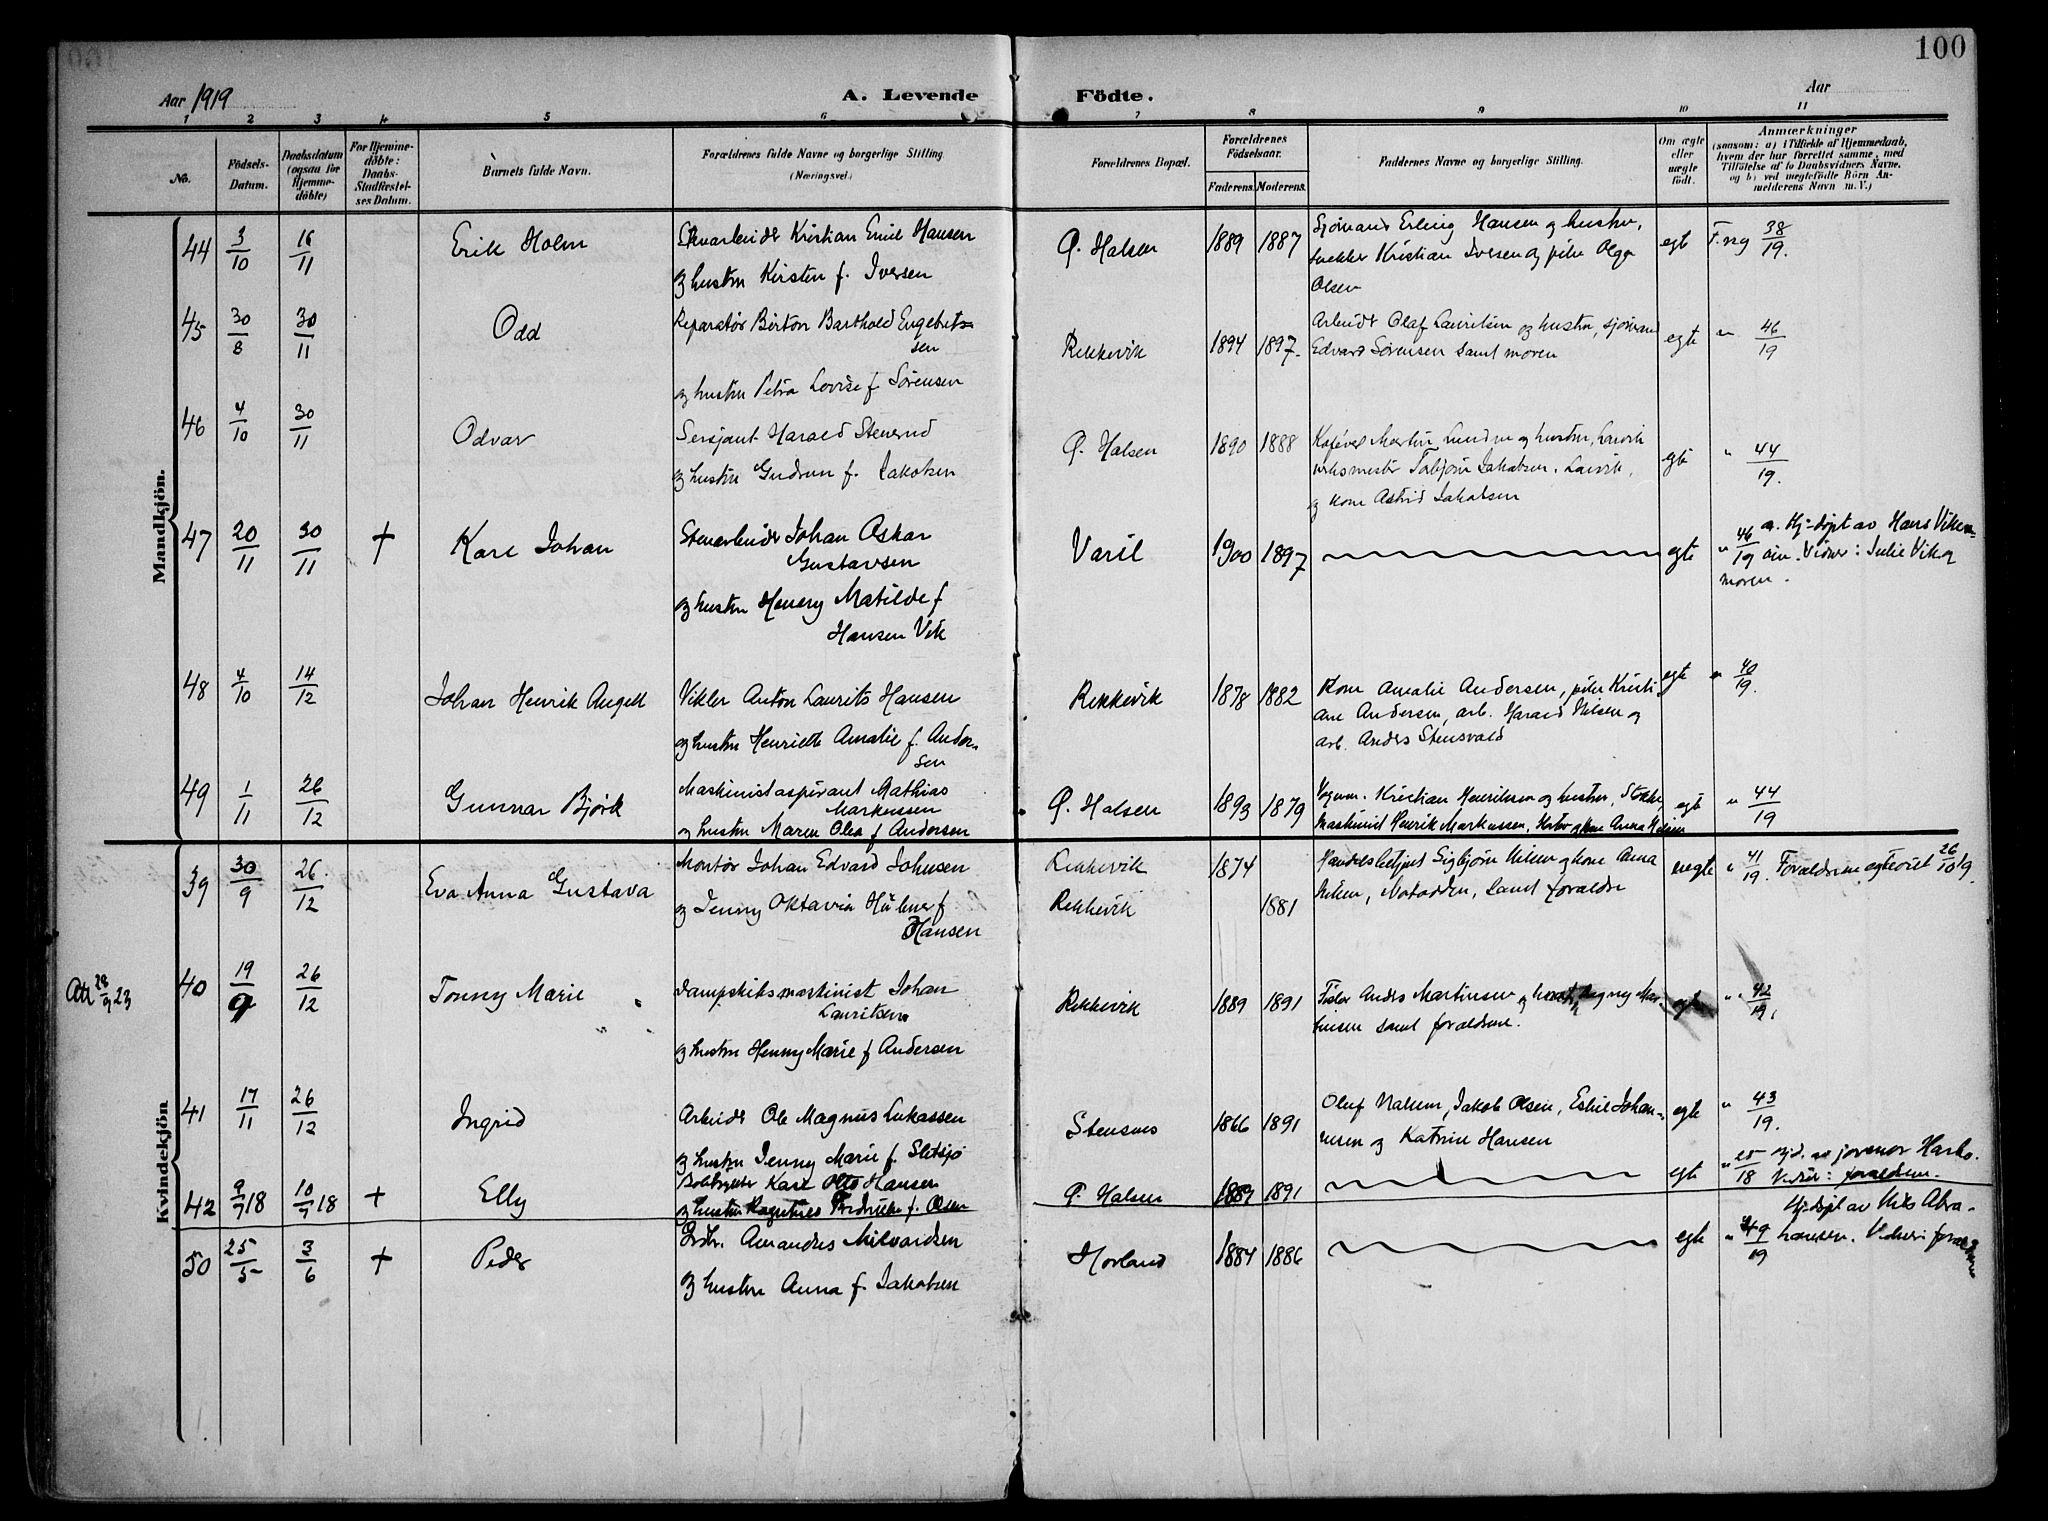 100
Aar 1919
A. Levende Födte.
Aar
1 2 3 4 5 6 7 8 9 10 11
No.
Födsels-Datum.
Daabsdatum (ogsaa for Hjemme-döbte)
For Hjemme-döbte: Daabs-Stadfæstel-ses Datum.
Barnets fulde Navn.
Forældrenes fulde Navne og borgerlige Stilling (Næringsvei.)
Forældrenes Bopæl.
Forældrenes Födselsaar.
Faderens. Moderens.
Faddernes Navne og borgerlige Stilling.
Om ægte eller uægte födt.
Anmærkninger
(saasom: a) i Tilfælde af Hjemmedaab,
hvem der har forrettet samme, med
Tilföielse af to Daabsvidners Navne,
og b) ved uegtefödte Börn An-
melderens Navn m. V.)
Mandkjön.
44 3/10 16/11 Erik Holm
Kristian Emil Hansen
og hustru Kirsten f. Iversen
Ø. Halsen 1889 1887
Sjømand Erling Hansen og hustru,
snekker Kristian Iversen og pike Olga
Olsen
egte F.reg 38/19.
45 30/8 30/11 Odd
Reparatør Birton Barthold Engebret-
sen
og hustru Petra Lovise f. Sørensen
Rekkevik 1894 1897.
Arbeider Olaf Lauritsen og hustru, sjømand
Edvard Sørensen samt moren
egte " 46/19
46 4/10 30/11 Odvar
Sersjant Harald Stenerud
og hustru Gudrun f. Jakobsen
Ø. Halsen 1890 1888
Martin og hustru, Larvik
Jakobsen, Larvik,
og kone Astrid Jakobsen
egte " 44/19.
47 20/11 30/11 + Karl Johan
Stenarbeider Johan Oskar
Gustavsen
og hustru Henny Matilde f.
Hansen Vik
Varil 1900 1897
egte " 46/19 a. Hj-døpt av Hans Viken-
Vidner: Julie Vik og
moren.
48 4/10 14/12 Johan Henrik Angell
Vikler Anton Laurits Hansen
og hustru Henriette Amalie f. Ander-
sen
Rekkevik 1878 1882
Kone Amalie Andersen, pike Kristi-
ane Andersen, arb. Harald Nilsen og
arb. Anders Stensvald
egte " 40/19.
49 1/11 26/12 Gunnar Bjørk
Maskinistaspirant Mathias
Markussen
og hustru Maren Olea f. Andersen
Ø. Halsen 1893 1879
Kristian Henriksen og hustru, Stokke
Maskinist Henrik Markussen, og kone Anna Nilsen
egte " 44/19
Kvindekjön
39 30/9 26/12 Eva Anna Gustava
Montør Johan Edvard Johnsen
og Jenny Oktavia Hübner f.
Hansen
Rekkevik 1874
Rekkevik 1881
Sigbjørn Nilsen og kone Anna
Nilsen, Notodden, samt foraldre
uegte " 41/19 Foraldrene egteviet 26/10 19.
Att 28/9 23
40 19/9 26/12 Tonny Marie
Dampskibsmaskinist Johan
Lauritsen
og hustru Henny Marie f. Andersen
Rekkevik 1889 1891
Anders Martinsen og Dagny Mar-
tinsen samt foraldrene.
egte " 42/19.
41 17/11 26/12 Ingrid
Arbeider Ole Magnus Lukassen
og hustru Jenny Marie f. Sletsjø
Stensnes 1866 1891
Oluf Jakob Olsen, Johan-
nesen og Katrine Hansen
egte " 43/19.
42 9/7 18 10/7 18 + Elly
Karl Otto Hansen
og hustru f. Olsen
Ø. Halsen 1889 1891
egte " 25/18 Hj.d. av jormor
Vidner: foraldrene.
50 25/5 3/6 + Peder
Amandus Milvardsen
og hustru Anna f. Jakobsen
Hovland 1884 1886
egte " 49/19 Hj.døpt av Nils Abra-
hamsen. Vidner: foraldrene